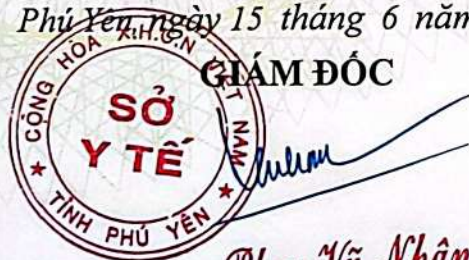 Phú Yên, ngày 15 tháng 6 năm
GIÁM ĐỐC
CỘNG HÒA X.H.C.N VIỆT NAM
SỞ
Y TẾ
TỈNH PHÚ YÊN
Vũ Nhân